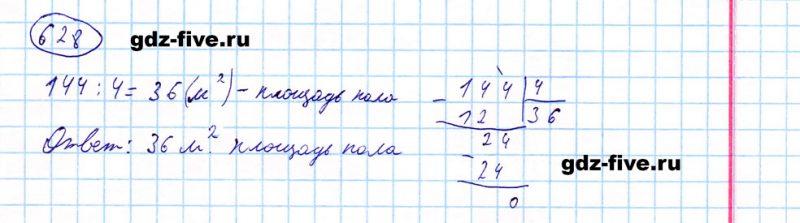 628 gdz-five.ru
144 : 4 = 36 (м²) - площадь пола
Ответ: 36 м² площадь пола
144 | 4
- 12 36
24
- 24
0
gdz-five.ru